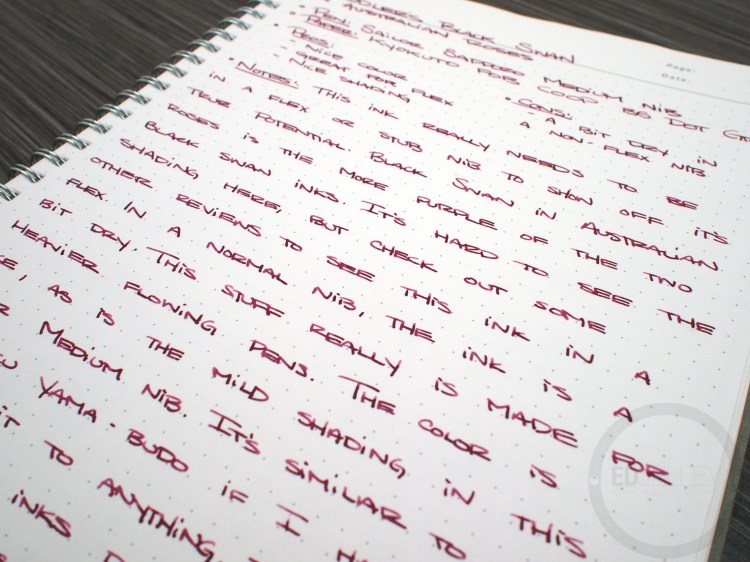 Black Swan
Australian Roses
• Pen: Sailor Medium Nib
• Paper: Kyokuto for Coop B5 Dot
Page:
Date:
Pros:
- Nice color
- Great for flex
- Nice shading
• Cons:
- A bit dry in
a non-flex nib
• Notes: This ink really needs to be
in a flex or stub nib to show off it's
true potential. Black Swan in Australian
Roses is the more purple of the two
Black Swan inks. It's hard to see the
shading here, but check out some
other reviews to see this ink in a
flex. In a normal nib, the ink is a
bit dry. This stuff really is made for
heavier flowing pens. The color is
, as is the mild shading in this
Medium nib. It's similar to
Yama-budo if I
it to anything,
inks
ED